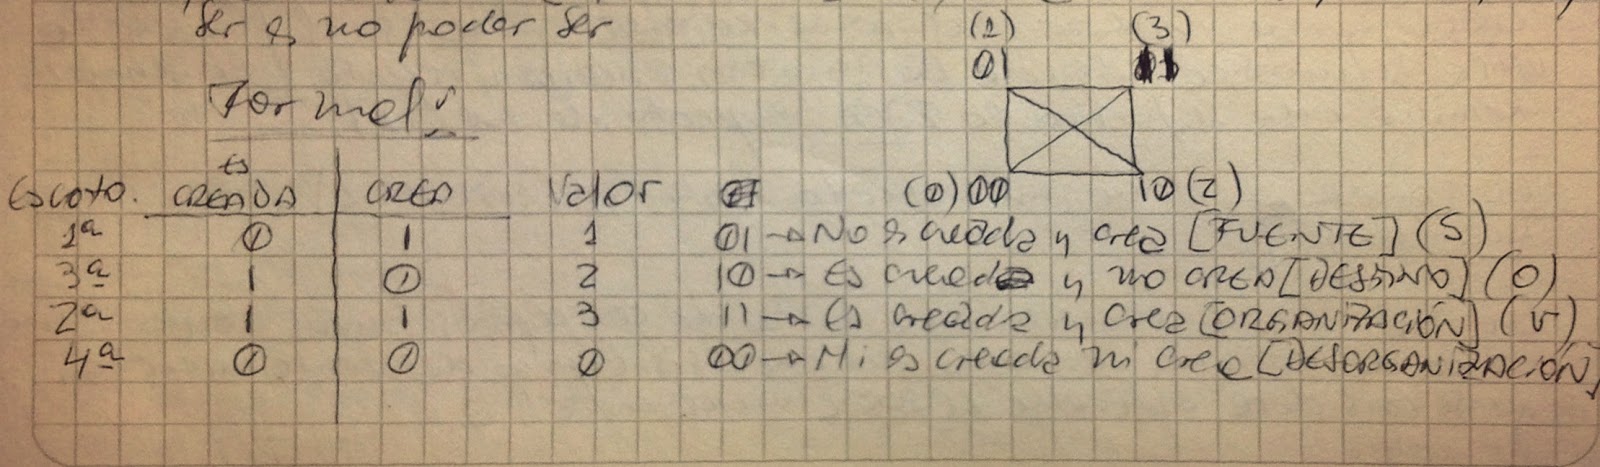 Ser es no poder ser
(1) (3)
01 11
Formal:
es
Escoto. CREADA CREA Valor (0) 00 10 (2)
1ª 0 1 1 01 → No es creada y crea [FUENTE] (S)
3ª 1 0 2 10 → Es creada y no CREA [DESTINO] (O)
2ª 1 1 3 11 → Es creada y crea [ORGANIZACIÓN] (V)
4ª 0 0 0 00 → Ni es creada ni crea [DESORGANIZACIÓN]